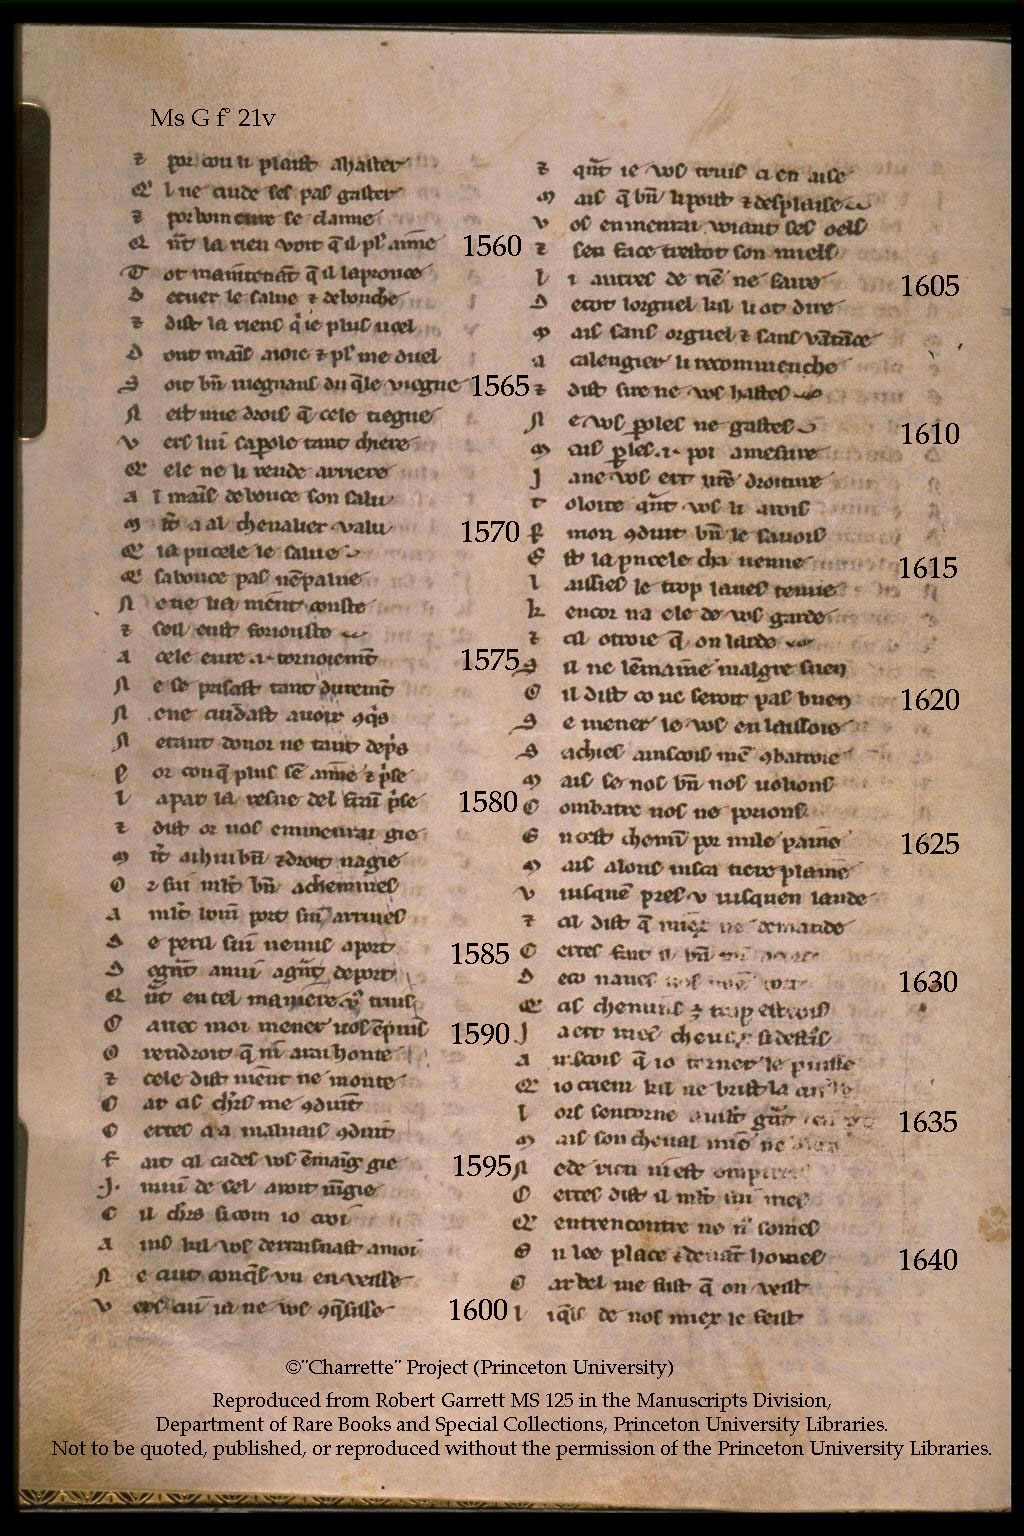 Ms G f° 21v
⁊ por cou li plaist a haster
Q il ne cuide ses pas gaster
⁊ por boin eure se claime
Q nt la rien voit q̄ il pl' aim̄e
1560
T ot maintenāt q̄ il laprouce
D e cuer le salue ⁊ de bouche
⁊ dist la riens q̇ ie plus uoel
D ont mais aioie ⁊ pl' me duel
S oit bn̄ uiegnans du q̄le uiegne
1565
N est mie drois q̄ cele tiegne
V ers lui sa ꝑole tant chiere
Q ele ne li rende arriere
a l mais de bouce son salu
m lt̄ a al cheualier valu
1570
Q ia pucele le salue
Q sa bouce pas nē palue
N e ne lia niēt couste
⁊ sen eust
a cele eure .i. tornoiemt̄
1575
N e se prisast tant duremt̄
N e ne cuidast auoir ꝯq̇s
N e tant donor ne tant de p̄s
P or cou q̄ plus sē aim̄e ⁊ ṗse
l a par la resne del frain ṗse
1580
⁊ dist or uos en menrai gie
m lt̄ ai hui bn̄ ⁊ droit nagie
O r sui mlt̄ bn̄ achemines
a mlt̄ boin port sui ariues
D e peril sui uenus a port
1585
D e gn̄t anui a gn̄t deport
Q n̄t en tel maniere vꝰ truis
C auec moi mener uos ē puis
O r en droit q̄ ni arai honte
1590
⁊ cele dist niēt ne monte
C ar cis ch'rs me ꝯduit
C ertes ci a maluais ꝯduit
f ait cil cades vos ēmaig gie
1595
.I. mui de sel aroit māgie
C il ch'rs si com io croi
a ins kil vos derraisnast a moi
N e cuit conq̄s vn en veisse
V ers cui ia ne vos ꝯq̄sisse
1600
⁊ qn̄t ie vos truis ci en aise
m ais q̄ bn̄ li poist ⁊ desplaise
V os en menrai voiant ses oels
⁊ sen face trestot son miels
l i autres de riē ne saire
1605
D e tot lorguel kil li ot dire
m ais sans orguel ⁊ sans vātāce
a calengier li recommenche
⁊ dist sire ne vos hastes
N e vos ꝑoles ne gastes
1610
m ais ꝑles .i. poi a mesure
J a ne vos ert ur̄e droiture
T oloite qn̄t vos li arois
P mon ꝯduit bn̄ le sauois
E st la pucele cha uenue
1615
l aissies le trop laues tenue
k encor na ele de vos garde
⁊ cil otroie q̄ on larde
S il ne lē maim̄e malgre suen
C il dist co ne seroit pas buen
1620
S e mener ie vos en laissoie
S achies ancois mē ꝯbatroie
m ais se nos bn̄ nos uolions
C ombatre nos ne porions
E n cest chemī por nule paine
1625
m ais alons iusca tiere plaine
V iusquē pres v iusquen lande
⁊ cil dist q̄ miex ne demande
C ertes fait il bn̄
D e co naues
1630
Q cis chemins ē trop estrois
J a ert mes cheuax si destrois
a incois q̄ io torner le puisse
Q io criem kil ne brist la
l ors sentorne
1635
m ais son cheual miē ne
N e de rien niest
C ertes dist il mlt̄ sui ires
Q entrencontre ne nꝰ somes
E n lee place ⁊ deuāt homes
1640
C ar bel me fust q̄ on veist
l i q̄ls de nos miex le feist
©"Charrette" Project (Princeton University)
Reproduced from Robert Garrett MS 125 in the Manuscripts Division,
Department of Rare Books and Special Collections, Princeton University Libraries.
Not to be quoted, published, or reproduced without the permission of the Princeton University Libraries.